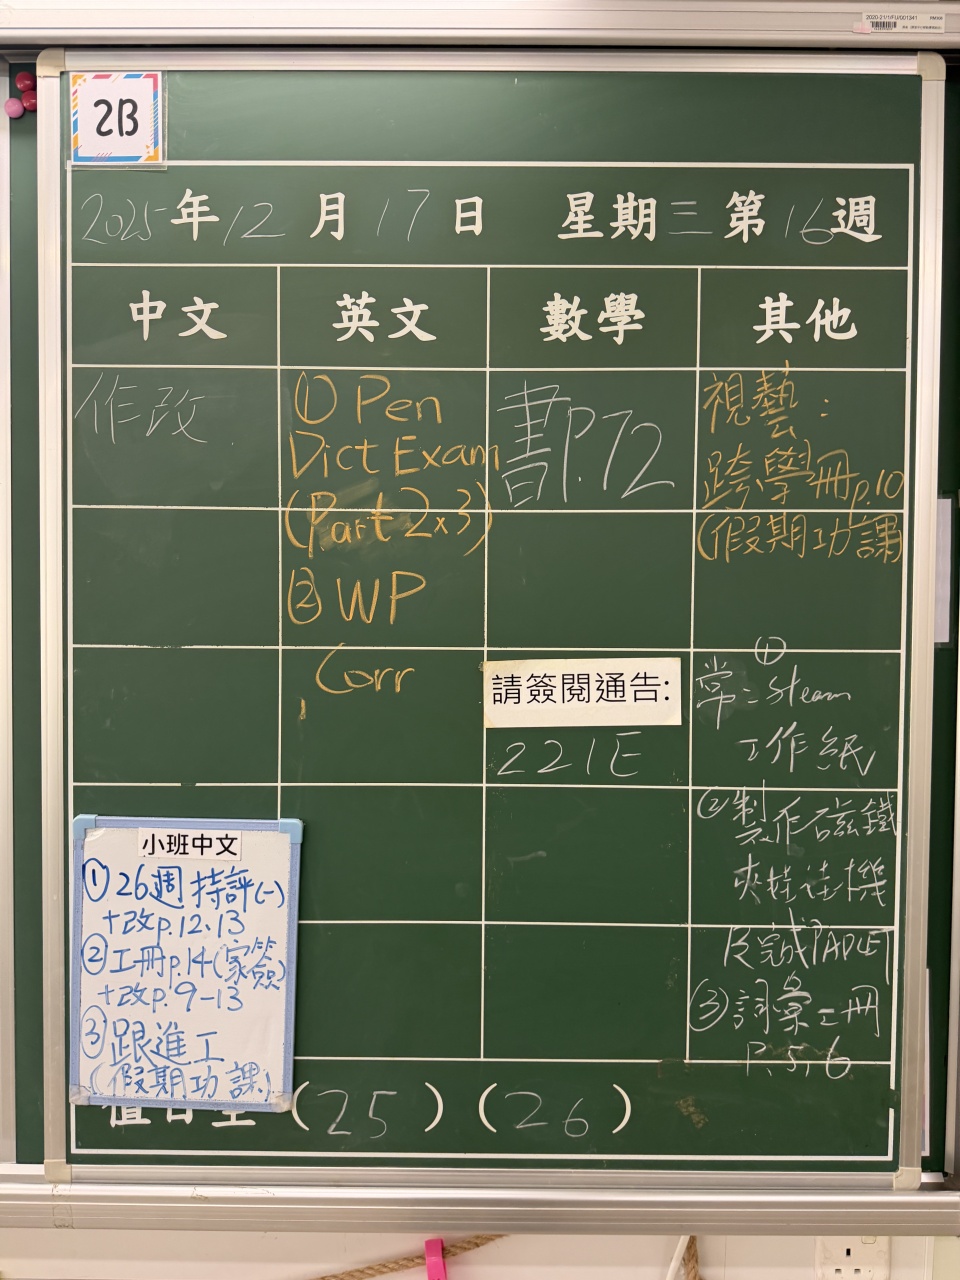 2020-21/1/FU/001241
2B
2025年12月17日 星期三第16週
中文 英文 數學 其他
作改
① Pen
Dict Exam
(Part 2×3)
② WP
Corr
書P.72
請簽閱通告:
221E
視藝:
跨學冊p.10
(假期功課)
①
常=Steam
工作紙
②製作磁鐵
夾娃娃機
及完成PADLET
③詞彙工冊
P.5,6
小班中文
①26週持評(一)
+改p.12、13
②工冊p.14(家簽)
+改p.9-13
③跟進工
(假期功課)
值日生 (25) (26)